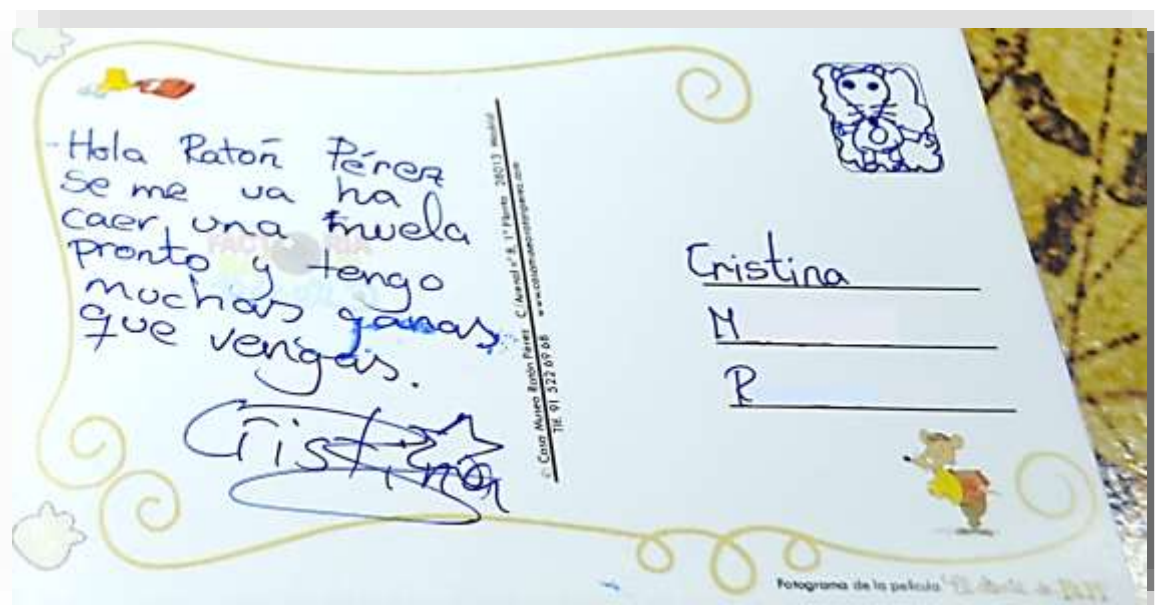 Hola Ratoñ Pérez
se me va ha
caer una muela
pronto y tengo
muchas ganas
que vengas.
Cristina
© Casa Museo Ratón Pérez C/Arenal nº 8, 1ª Planta 28013 Madrid
Tlf. 91 522 69 68 www.casamuseoratonperez.com
Cristina
M
R
Fotograma de la película